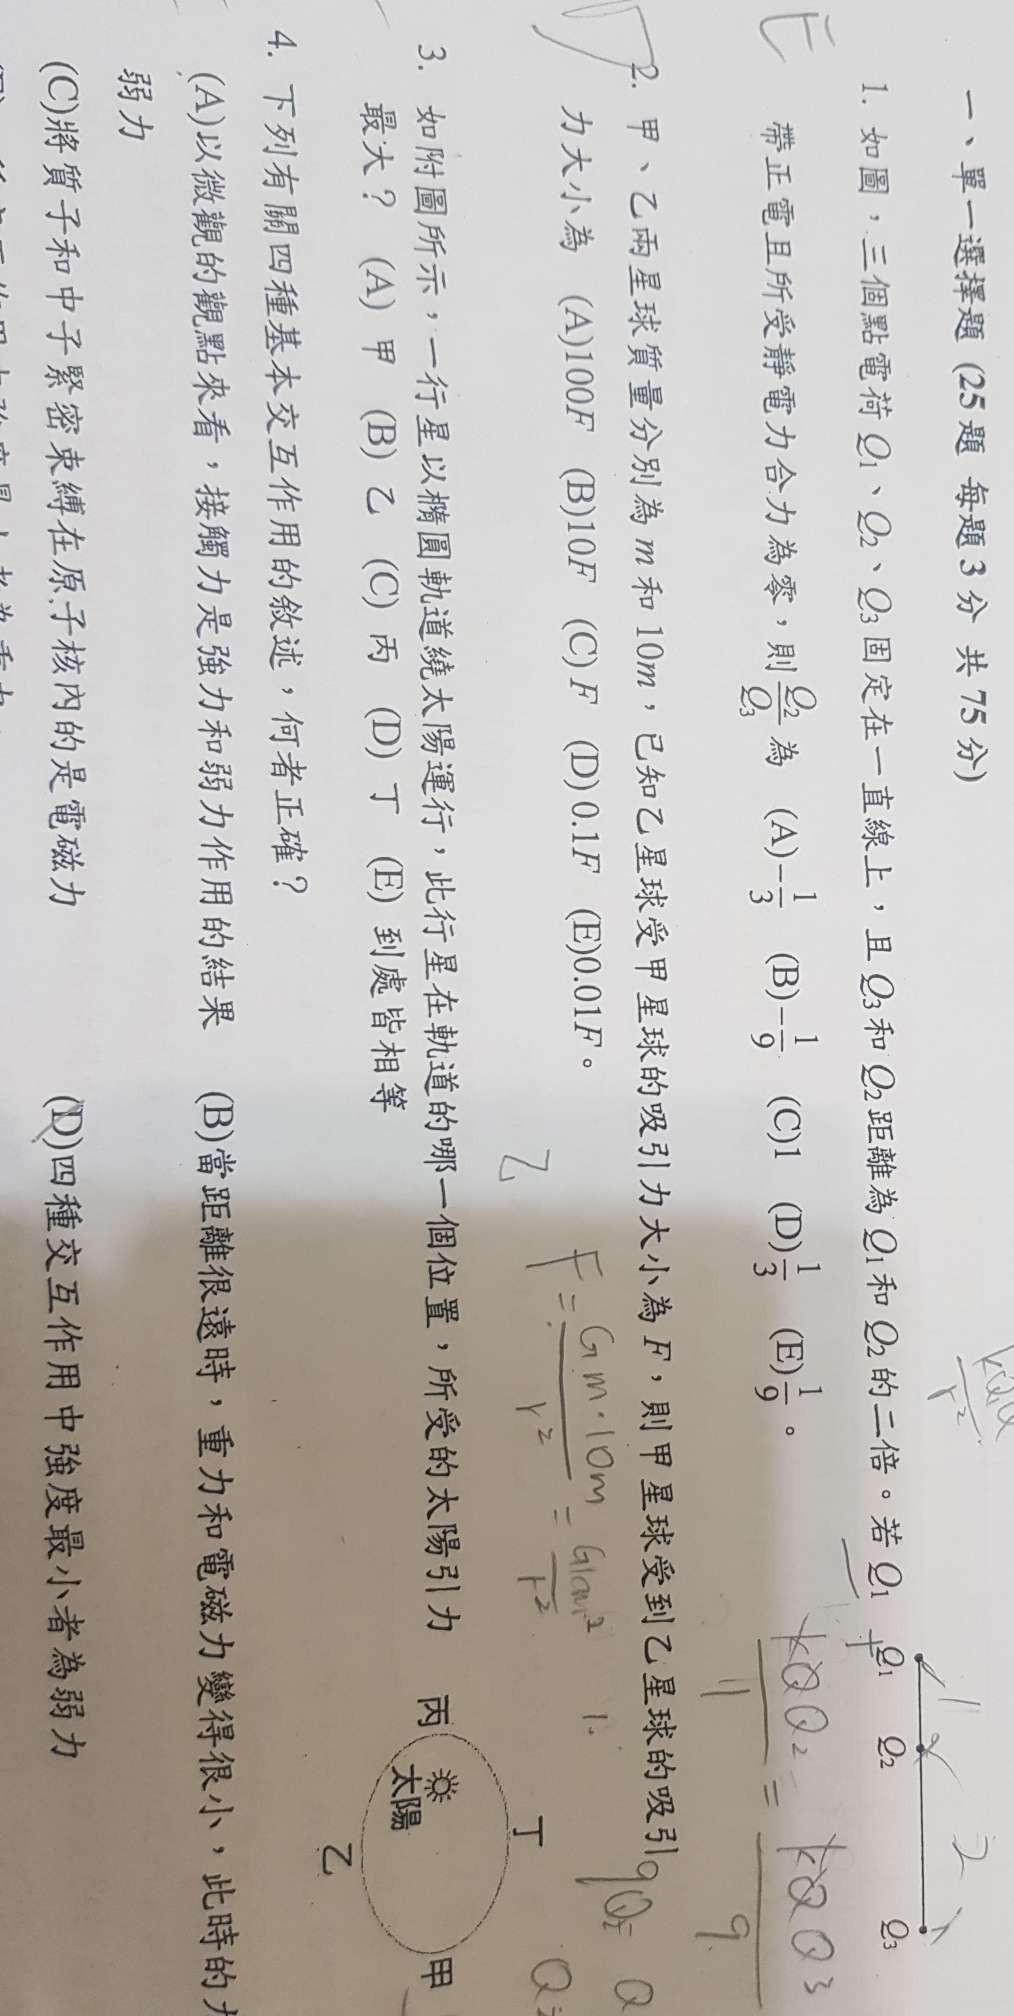 一、單一選擇題 (25題 每題3分 共75分)
1. 如圖，三個點電荷Q1、Q2、Q3固定在一直線上，且Q3和Q2距離為Q1和Q2的二倍。若Q1
帶正電且所受靜電力合力為零，則Q2/Q3為 (A)-1/3 (B)-1/9 (C)1 (D)1/3 (E)1/9。
Q1 Q2 Q3
1 2
E
kQQ2/1 = kQQ3/9
2. 甲、乙兩星球質量分別為m和10m，已知乙星球受甲星球的吸引力大小為F，則甲星球受到乙星球的吸引
力大小為 (A)100F (B)10F (C)F (D)0.1F (E)0.01F。
乙 F = Gm·10m/r² = G10m²/r²
3. 如附圖所示，一行星以橢圓軌道繞太陽運行，此行星在軌道的哪一個位置，所受的太陽引力
最大？ (A) 甲 (B) 乙 (C) 丙 (D) 丁 (E) 到處皆相等
丁
丙 太陽 甲
乙
4. 下列有關四種基本交互作用的敘述，何者正確？
(A)以微觀的觀點來看，接觸力是強力和弱力作用的結果 (B)當距離很遠時，重力和電磁力變得很小，此時的
弱力
(C)將質子和中子緊密束縛在原子核內的是電磁力 (D)四種交互作用中強度最小者為弱力